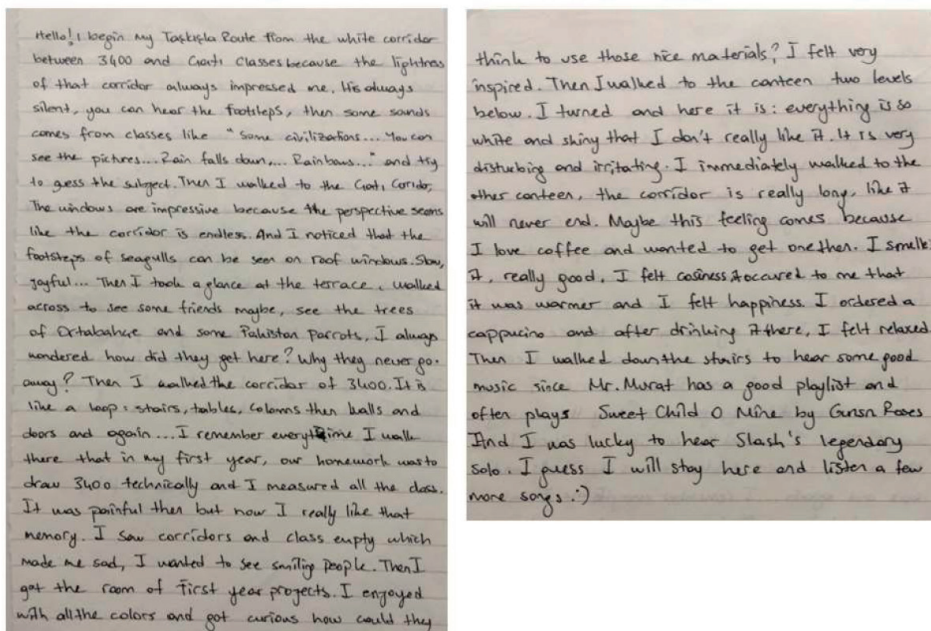 Hello! I begin my Taşkışla Route from the white corridor
between 3400 and Çatı Classes because the lightness
of that corridor always impressed me. His always
silent, you can hear the footsteps, then some sounds
comes from classes like "Some civilizations... You can
see the pictures... Rain falls down,... Rainbows..." and try
to guess the subject. Then I walked to the Çatı Coridor,
The windows are impressive because the perspective seems
like the corridor is endless. And I noticed that the
footsteps of seagulls can be seen on roof windows. Slow,
joyful... Then I took a glance at the terrace, walked
across to see some friends maybe, see the trees
of Ortabahçe and some Pakistan parrots, I always
wondered how did they get here? Why they never go
away? Then I walked the corridor of 3400. It is
like a loop: stairs, tables, coloms then halls and
doors and again... I remember everytime I walk
there that in my first year, our homework was to
draw 3400 technically and I measured all the class.
It was painful then but now I really like that
memory. I saw corridors and class empty which
made me sad, I wanted to see smiling people. Then I
got the room of first year projects. I enjoyed
with all the colors and got curious how could they
think to use those nice materials? I felt very
inspired. Then I walked to the canteen two levels
below. I turned and here it is: everything is so
white and shiny that I don't really like it. It is very
disturbing and irritating. I immediately walked to the
other canteen, the corridor is really long, like it
will never end. Maybe this feeling comes because
I love coffee and wanted to get one then. I smelled
it, really good. I felt cosiness it occured to me that
it was warmer and I felt happiness. I ordered a
cappucino and after drinking it there, I felt relaxed
Then I walked down the stairs to hear some good
music since Mr. Murat has a good playlist and
often plays Sweet Child O Mine by Gunsn Roses
And I was lucky to hear Slash's legendary
solo. I guess I will stay here and listen a few
more songs :)